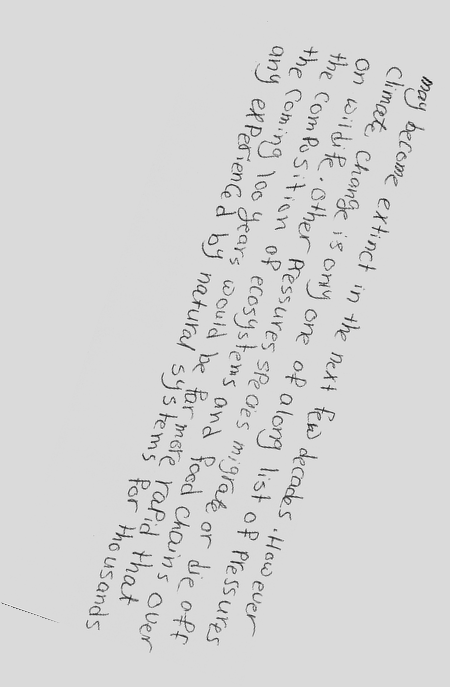 may become extinct in the next few decades. However
climate change is only one of along list of pressures
on wildife. other pressures species migrate or die off
the composition of ecosystems and food chains over
the coming 100 years would be far more rapid that
any experienced by natural systems for thousands